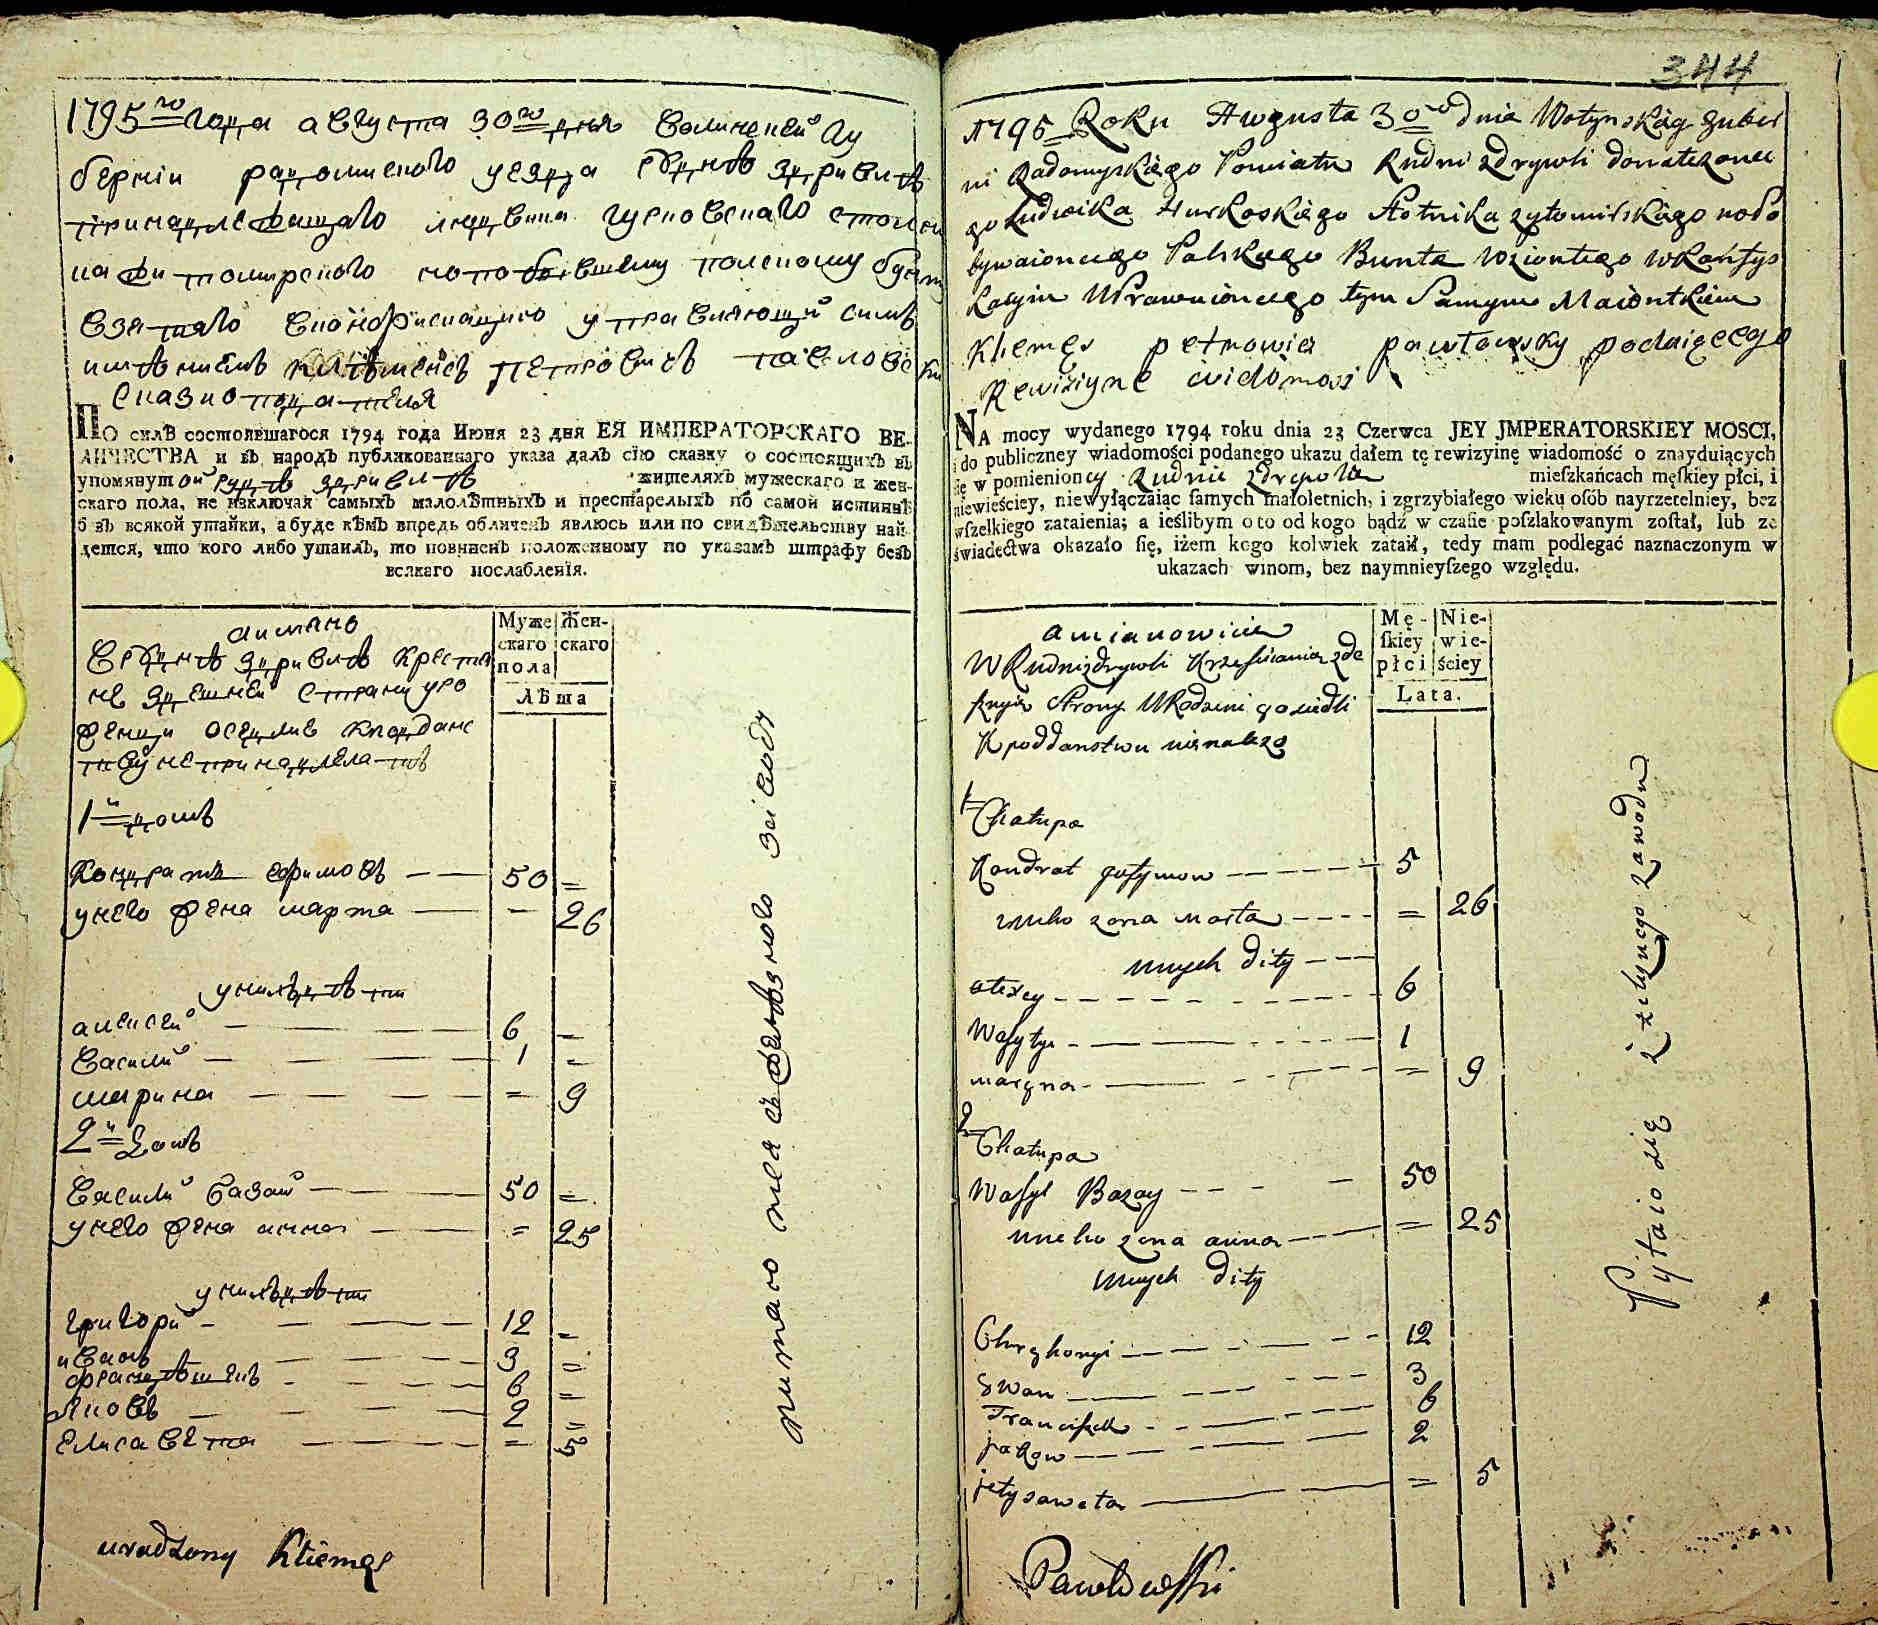 1795го года августа 30го дня Волинской Гу
берніи радомиского уезда врудне здривле
принадлежащаго людвика гурковскаго столни
ка житомирского попо бывшему полскому бунту
взятаго вконфискацию управляющи симъ
имениемъ клеменсъ петровичъ павловски
сказкоподатель
ПО силѣ состоявшагося 1794 года Июня 23 дня ЕЯ ИМПЕРАТОРСКАГО ВЕ-
ЛИЧЕСТВА и въ народъ публикованнаго указа далъ сїю сказку о состоящихъ въ
упомянутой рудне здривле жителяхъ мужескаго и жен-
скаго пола, не изключая самыхъ малолѣтныхъ и престарелыхъ по самой истиннѣ
безъ всякой утайки, а буде кѣмъ впредь обличенъ явлюсь или по свидѣтельству най-
дется, что кого либо утаилъ, то повиненъ положенному по указамъ штрафу безъ
всякаго послабленїя.
имянно
врудне здривле крестя
не здешней страни уро
женци оседлие кподданс
тву непринадлежатъ
Муже скаго пола
Жен- скаго
Лѣта
1й домъ
Кондратъ ефимовъ 50 =
унего жена марта — 26
унихъ дѣти
алексей 6 =
василий 1 =
марина = 9
2й домъ
василий базай 50 =
унего жена анна = 25
унихъ дѣти
григорий 12 =
иванъ 3 =
6 =
яковъ 2 =
елисавета = 5
питаются железного заводу
uradzony Kliemęs
344
1795 Roku Augusta 30go dnia Wołynskiąg guber
ni Radomyskiego Powiatu Rudni zdrywli donalezonce
go Ludwika Hurkoskiego Stolnika zytomirskiego nopo
bywaioncego Polskiego Bunta Wziontego wkonfys
kacyiu UPrawuioncego tym Samym Maiontkiem
Kliemęs petrowicz pawłowsky podaiącego
Rewiziyne widomosi
NA mocy wydanego 1794 roku dnia 23 Czerwca JEY JMPERATORSKIEY MOSCI,
i do publiczney wiadomości podanego ukazu dałem tę rewizyinę wiadomość o znayduiących
się w pomienioncy Rudnie zdrywla mieſzkańcach męſkiey płci, i
niewieściey, niewyłączaiąc ſamych małoletnich, i zgrzybiałego wieku oſób nayrzetelniey, bez
wſzelkiego zataienia; a ieślibym o to od kogo bądź w czaſie poſzlakowanym zoſtał, lub ze
świadectwa okazało ſię, iżem kogo kolwiek zataił, tedy mam podlegać naznaczonym w
ukazach winom, bez naymnieyſzego względu.
amianowicie
WRudnizdrywli Krzestiania zde
sznyia Strony URodzeni gosiedli
Kpoddanstwu nienalezo
Mę- ſkiey płci
Nie- wie- ściey
Lata.
1= Chatupa
Kondrat jofymow 5
uneho zona marta = 26
unych dity
olexey 6
Wasyly 1
maryna = 9
2= Chatupa
Wasyl Bazay 50
uneho zona anna = 25
unych dity
Chryhoryi 12
Jwan 3
Franciszek 6
jakow 2
jelysaweta = 5
Pytaio się z zelyznego zawodu
Pawłowski